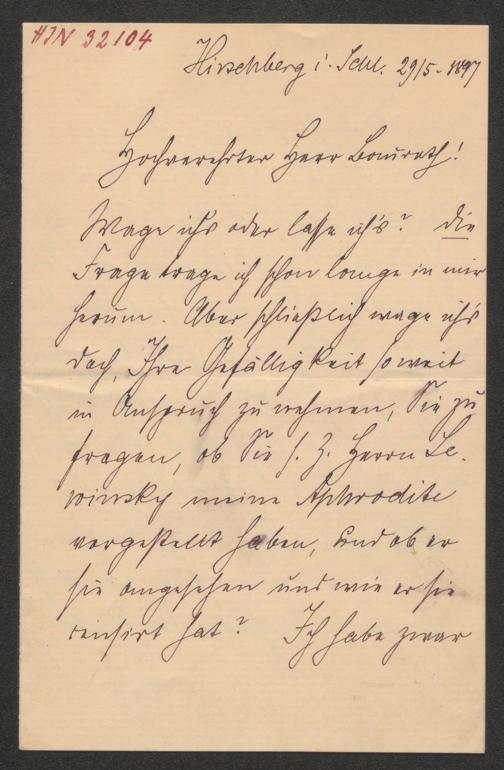 HIN 32104
Hirschberg i. Schl. 29/5. 1897
Hochverehrter Herr Baurath!
Wage ich's oder lasse ich's? Die
Frage trage ich schon lange in mir
herum. Aber schließlich wage ich's
doch, Ihre Gefälligkeit soweit
in Anspruch zu nehmen, Sie zu
fragen, ob Sie s. Z. Herrn Le-
winsky meine Aphrodite
vorgestellt haben, und ob er
sie angesehen und wie er sie
censirt hat? Ich habe zwar